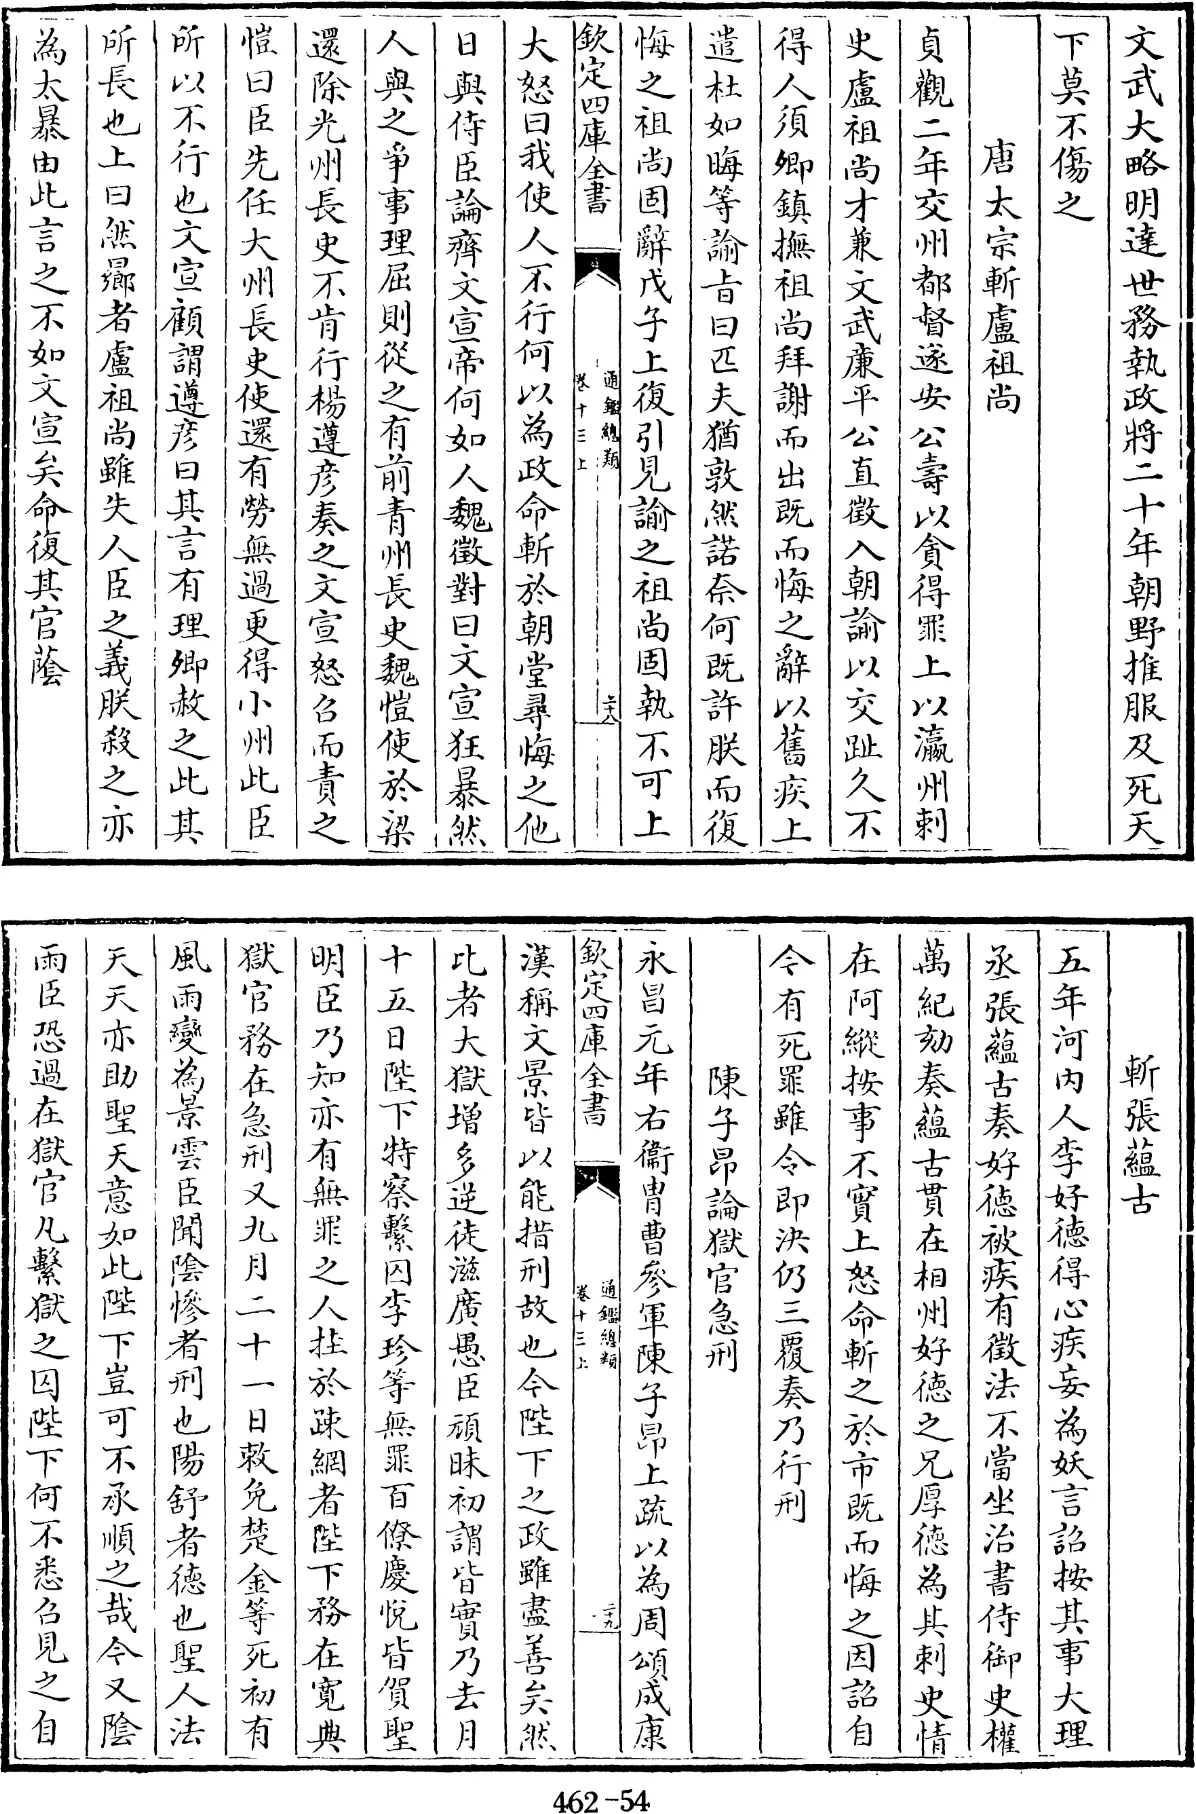 文武大略明達世務執政將二十年朝野推服及死天
下莫不傷之
唐太宗斬盧祖尚
貞觀二年交州都督遂安公壽以貪得罪上以瀛州刺
史盧祖尚才兼文武廉平公直徵入朝諭以交趾久不
得人須卿鎮撫祖尚拜謝而出既而悔之辭以舊疾上
遣杜如晦等諭旨曰匹夫猶敦然諾奈何既許朕而復
悔之祖尚固辭戊子上復引見諭之祖尚固執不可上
欽定四庫全書
通鑑總類
卷十三上
二十八
大怒曰我使人不行何以為政命斬於朝堂尋悔之他
日與侍臣論齊文宣帝何如人魏徵對曰文宣狂暴然
人與之爭事理屈則從之有前青州長史魏愷使於梁
還除光州長史不肯行楊遵彥奏之文宣怒召而責之
愷曰臣先任大州長史使還有勞無過更得小州此臣
所以不行也文宣顧謂遵彥曰其言有理卿赦之此其
所長也上曰然曏者盧祖尚雖失人臣之義朕殺之亦
為太暴由此言之不如文宣矣命復其官蔭
斬張蘊古
五年河內人李好德得心疾妄為妖言詔按其事大理
丞張蘊古奏好德被疾有徵法不當坐治書侍御史權
萬紀劾奏蘊古貫在相州好德之兄厚德為其刺史情
在阿縱按事不實上怒命斬之於市既而悔之因詔自
今有死罪雖令即決仍三覆奏乃行刑
陳子昂論獄官急刑
永昌元年右衞胄曹參軍陳子昂上疏以為周頌成康
欽定四庫全書
通鑑總類
卷十三上
二十九
漢稱文景皆以能措刑故也今陛下之政雖盡善矣然
比者大獄增多逆徒滋廣愚臣頑昧初謂皆實乃去月
十五日陛下特察繫囚李珍等無罪百僚慶悅皆賀聖
明臣乃知亦有無罪之人挂於疎網者陛下務在寬典
獄官務在急刑又九月二十一日敕免楚金等死初有
風雨變為景雲臣聞陰慘者刑也陽舒者德也聖人法
天天亦助聖天意如此陛下豈可不承順之哉今又陰
雨臣恐過在獄官凡繫獄之囚陛下何不悉召見之自
462-54